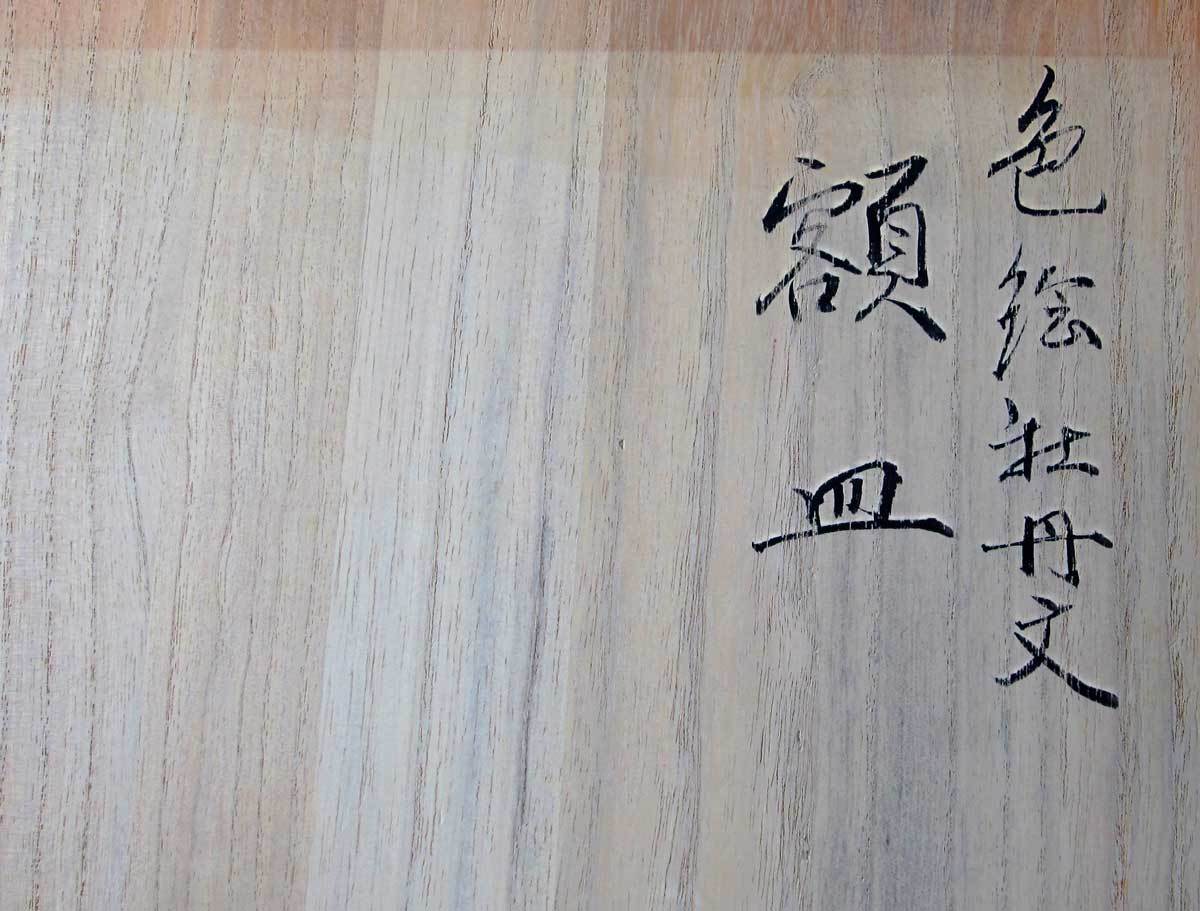 色絵牡丹文
額皿